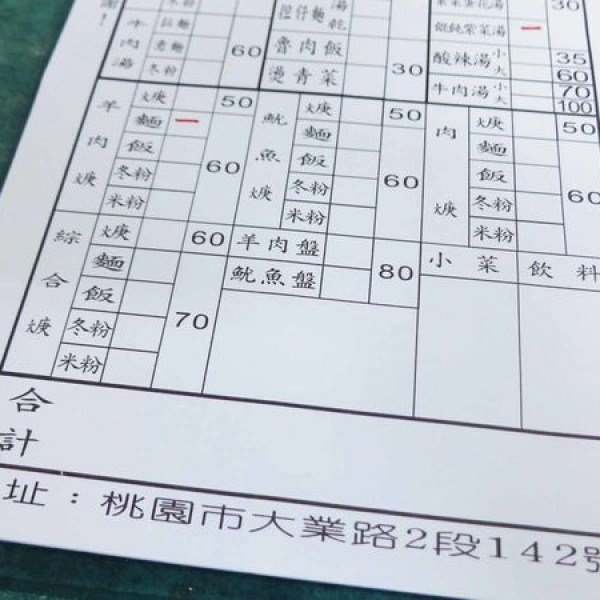 謝!
牛肉湯
拉麵
意麵
冬粉
60
湯
擔仔麵 乾
魯肉飯
燙青菜
30
紫菜蛋花湯
30
餛飩紫菜湯 一
酸辣湯 小 35
大 60
牛肉湯 小 70
大 100
羊肉焿
焿 50
麵 一
飯
冬粉
米粉
60
魷魚焿
焿 50
麵
飯
冬粉
米粉
60
肉焿
焿 50
麵
飯
冬粉
米粉
60
綜合焿
焿 60
麵
飯
冬粉
米粉
70
羊肉盤
魷魚盤
80
小菜
飲料
合計
址:桃園市大業路2段142號